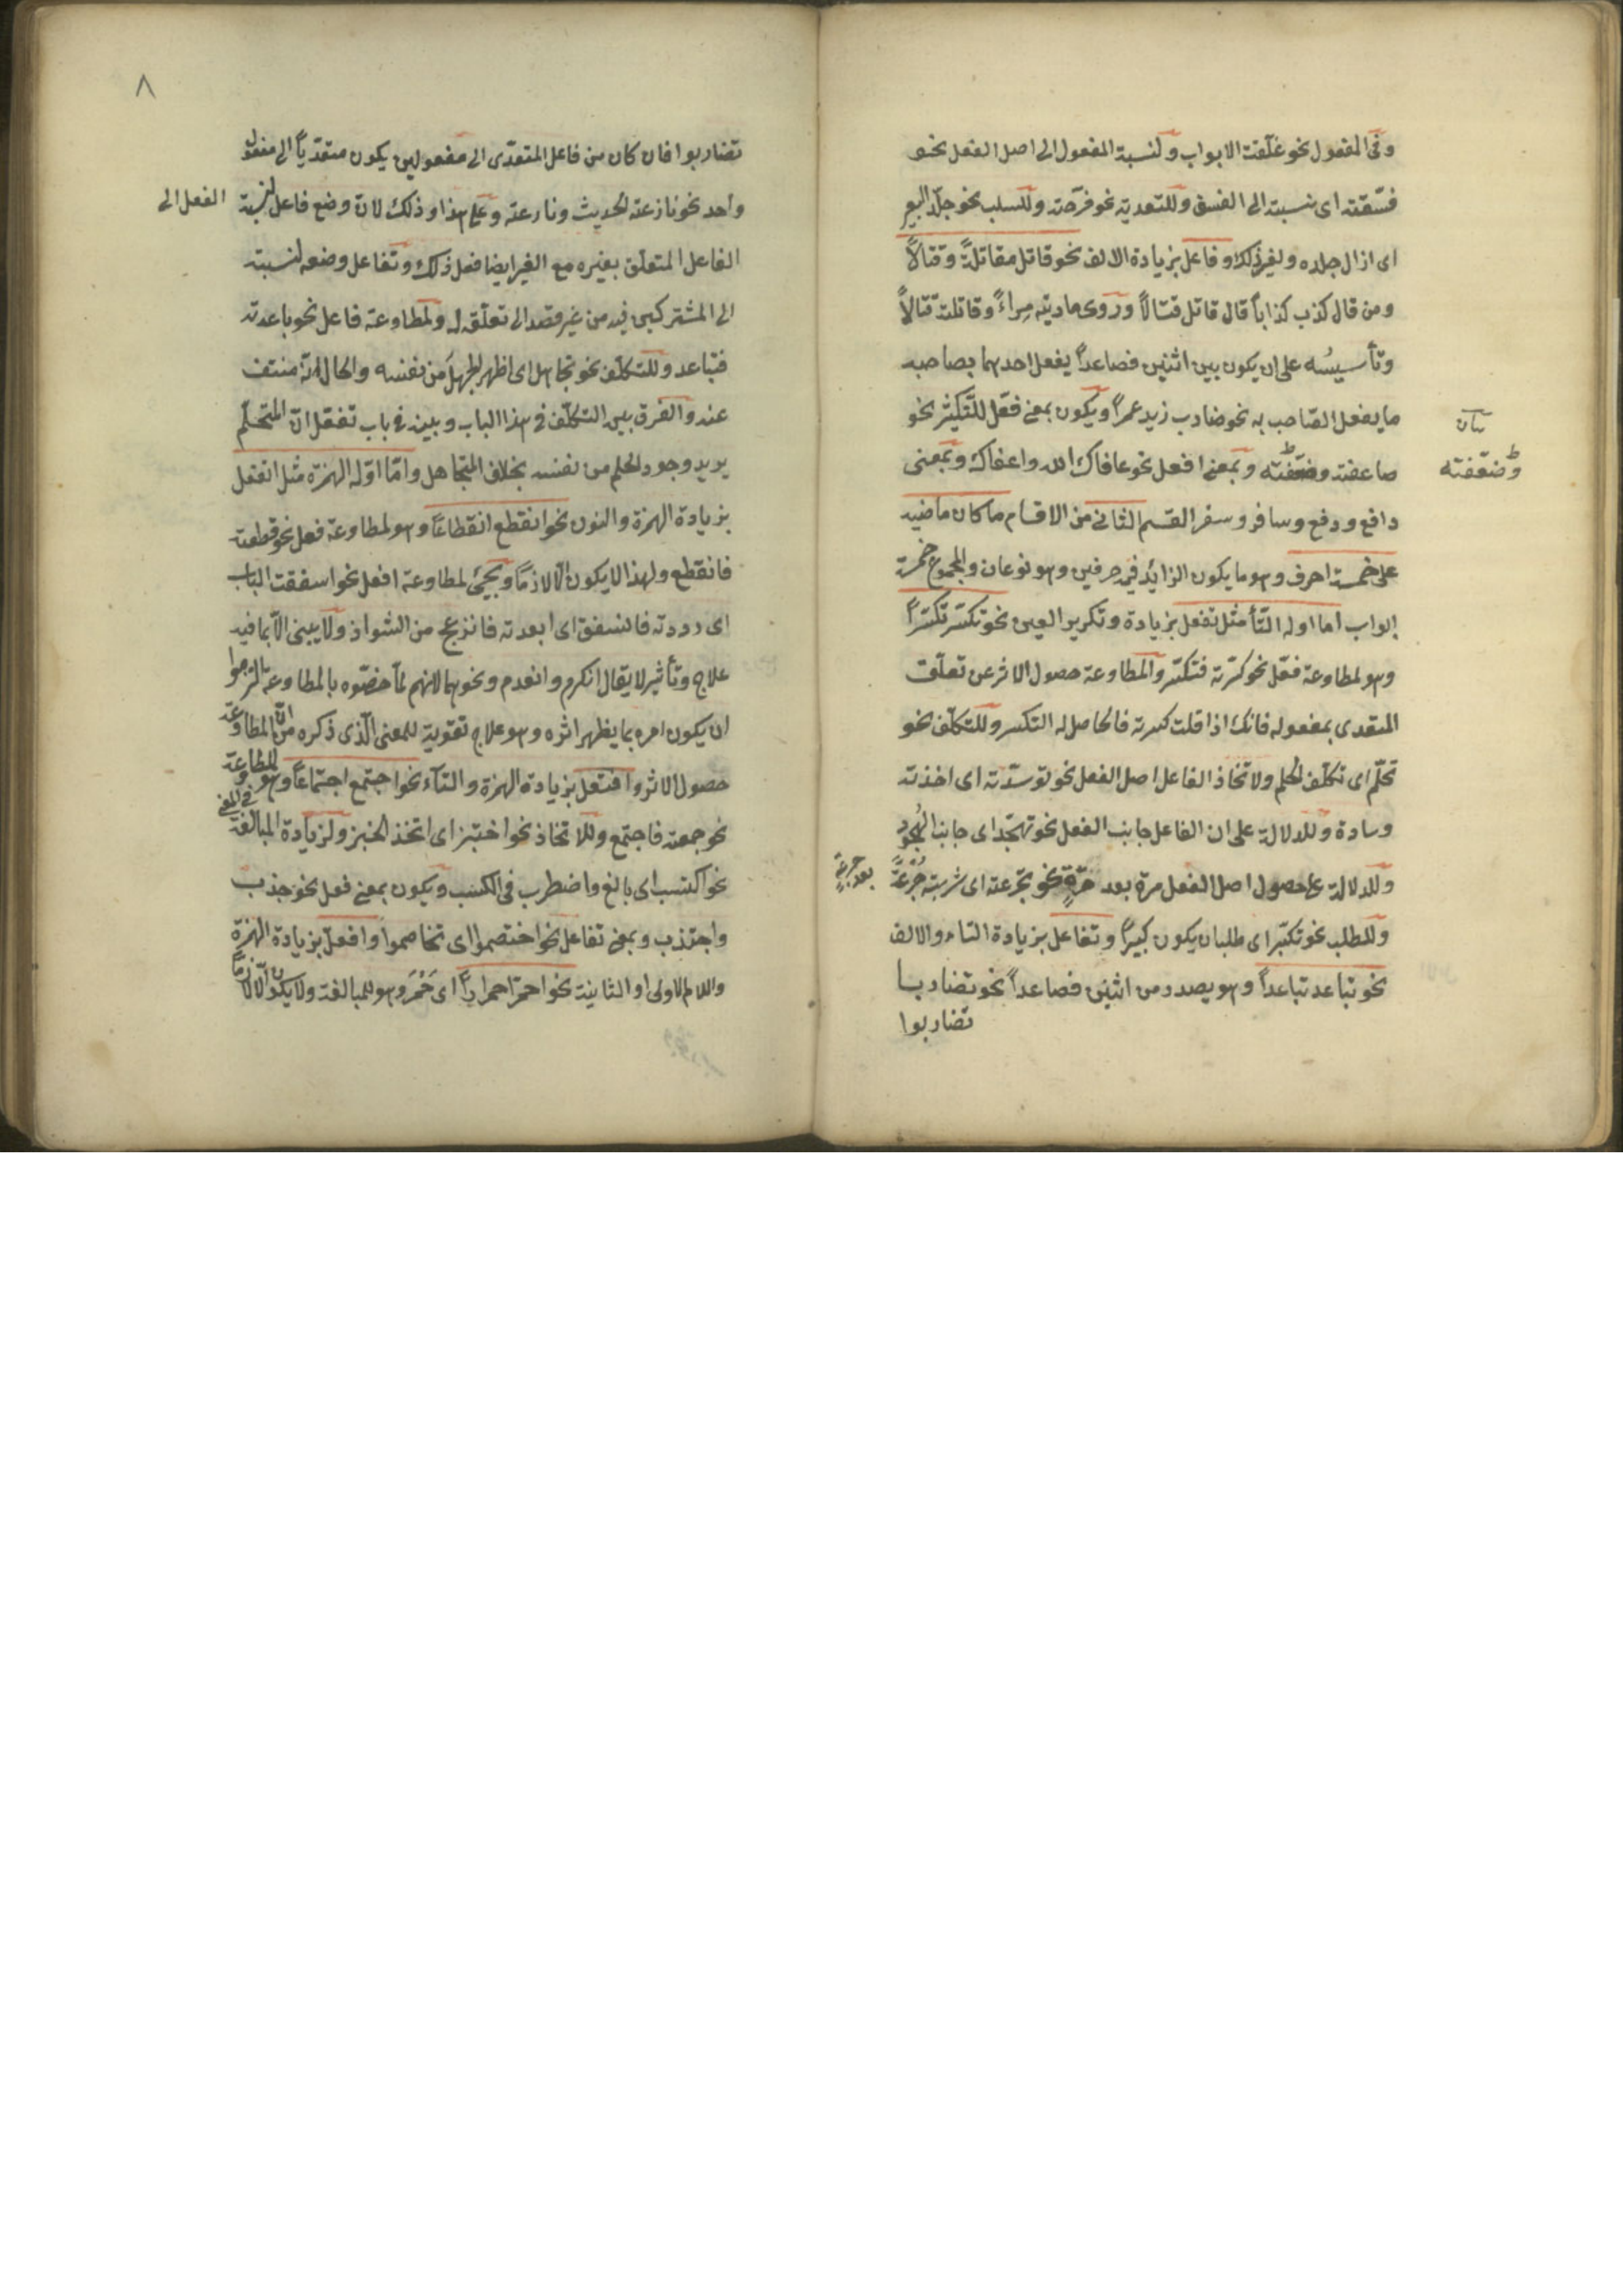 وفي المفعول نحو غلّقت الابواب ولنسبة المفعول الى اصل الفعل نحو
فسّقته اى نسبته الى الفسق وللتعدية نحو فرّحته وللسلب نحو جلّد البعير
اى ازال جلده ولغير ذلك وفاعل بزيادة الالف نحو قاتل مقاتلةً وقتالاً
ومن قال كذب كذاباً قال قاتل قتّالاً وروى ماريته مِراءً وقاتلته قتّالاً
وتأسيسُه على ان يكون بين اثنين فصاعداً يفعل احدهما بصاحبه
ما يفعل الصّاحب به نحو ضارب زيد عمراً ويكون بمعنى فعّل للتّكثير نحو
ضاعفته وضعّفته وبمعنى افعل نحو عافاك الله واعفاك وبمعنى
وضعّفته
دافع ودفع وسافر وسفر القسم الثانى من الاقسام ما كان ماضيه
على خمسة احرف وهو ما يكون الزائد فيه حرفين وهو نوعان والمجموع خمسة
ابواب اما اوله التّأ مثل تفعل بزيادة وتكرير العين نحو تكسّر تكسّراً
وهو لمطاوعة فعّل نحو كسّرته فتكسّر والمطاوعة حصول الاثر عن تعلّق
المتعدى بمفعوله فانك اذا قلت كسرته فالحاصل له التكسر وللتكلّف نحو
تحلّم اى تكلّف الحلم ولاتخاذ الفاعل اصل الفعل نحو توسّدته اى اخذته
وسادة وللدلالة على ان الفاعل جانب الفعل نحو تهجّد اى جانب الهُجود
وللدلالة على حصول اصل الفعل مرة بعد مرّةٍ نحو تجرّعته اى شربته جُرْعَةً
بعد جرعةٍ
وللطلب نحو تكبّر اى طلب ان يكون كبيراً وتفاعل بزيادة التاء والالف
نحو تباعد تباعداً وهو يصدر من اثنين فصاعداً نحو تضاربا
تضاربوا
٨
تضاربوا فان كان من فاعل المتعدّى الى مفعولين يكون متعدّياً الى مفعول
واحد نحو نازعته الحديث وعلى هذا وذلك لانّ وضع فاعل لنسبة
الفعل الى
الفاعل المتعلّق بغيره مع الغير ايضا فعل ذلك وتفاعل وضعه لنسبته
الى المشتركين فيه من غير قصد الى تعلّقه له ولمطاوعة فاعل نحو باعدته
فتباعد وللتكلّف نحو تجاهل اى اظهر الجهل من نفسه والحال انّه منتف
عنه والفرق بين التكلّف فى هذا الباب وبينه فى باب تفعّل انّ المتحلّم
يريد وجود الحلم من نفسه بخلاف المتجاهل وامّا اوّله الهمزة مثل انفعل
بزيادة الهمزة والنون نحو انقطع انقطاعاً وهو لمطاوعة فعل نحو قطعته
فانقطع ولهذا لا يكون الّا لازماً ويجئ لمطاوعة افعل نحو اسفقت الباب
اى رددته فانسفق اى ابعدته فانزعج من الشواذ ولا يبنى الّا بما فيه
علاج وتأثير لا يقال انكرم وانعدم ونحوهما لانهم لمّا خصّوه بالمطاوعة التزموا
ان يكون امره بما يظهر اثره وهو علاج تقوية للمعنى الّذى ذكره من انّ المطاوعة
حصول الاثر وافتعل بزيادة الهمزة والتآء نحو اجتمع اجتماعاً وهو للمطاوعة
نحو جمعته فاجتمع وللاتخاذ نحو اختبز اى اتخذ الخبز ولزيادة المبالغة فى المعنى
نحو اكتسب اى بالغ واضطرب فى الكسب ويكون بمعنى فعل نحو جذب
واجتذب وبمعنى تفاعل نحو اختصموا اى تخاصموا وافعلّ بزيادة الهمزة
واللام الاولى او الثانية نحو احمرّ احمراراً اى حَمُرَ وهو للمبالغة ولا يكون الّا لازماً